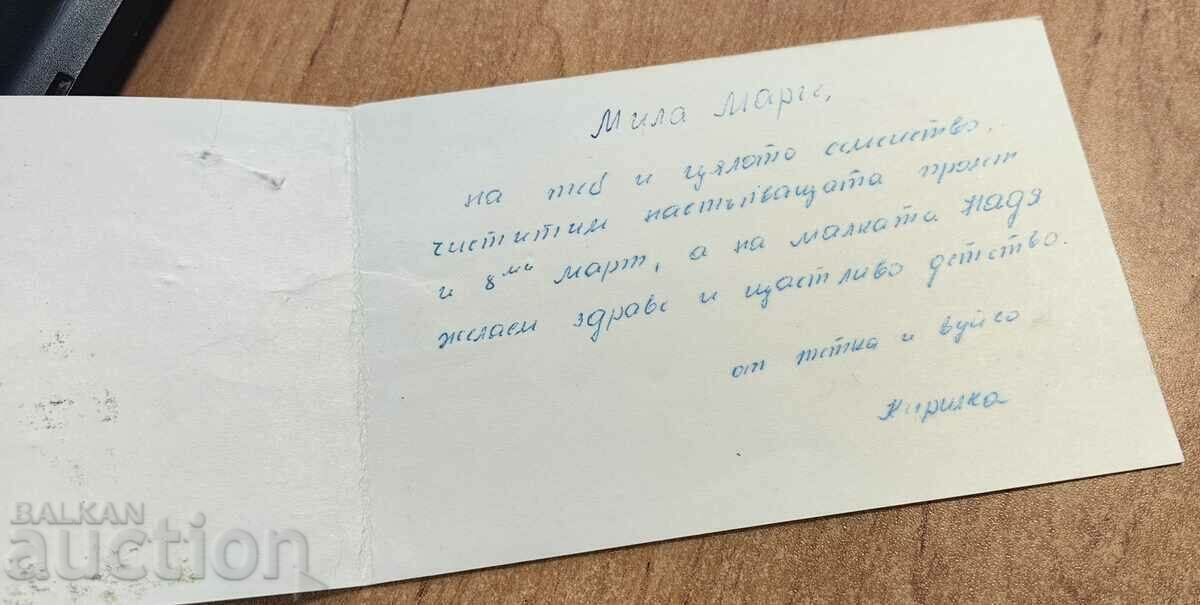 Мила Марге,
на теб и цялото семейство,
честитим настъпващата пролет
и 8ми март, а на малката Надя
желаем здраве и щастливо детство.
от тетка и вуйчо
Кирилка
BALKAN
auction